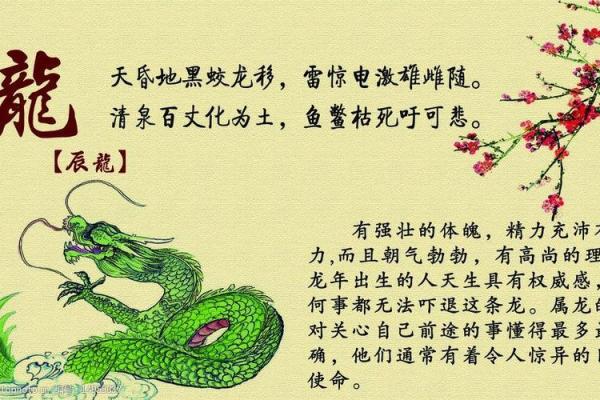 龍
天昏地黑蛟龙移，雷惊电激雄雌随。
清泉百丈化为土，鱼鳖枯死吁可悲。
【辰龍】
有强壮的体魄，精力充沛
力,而且朝气勃勃，有高尚的理
龙年出生的人天生具有权威感，
何事都无法吓退这条龙。属龙的
对关心自己前途的事懂得最多
确，他们通常有着令人惊异的
使命。